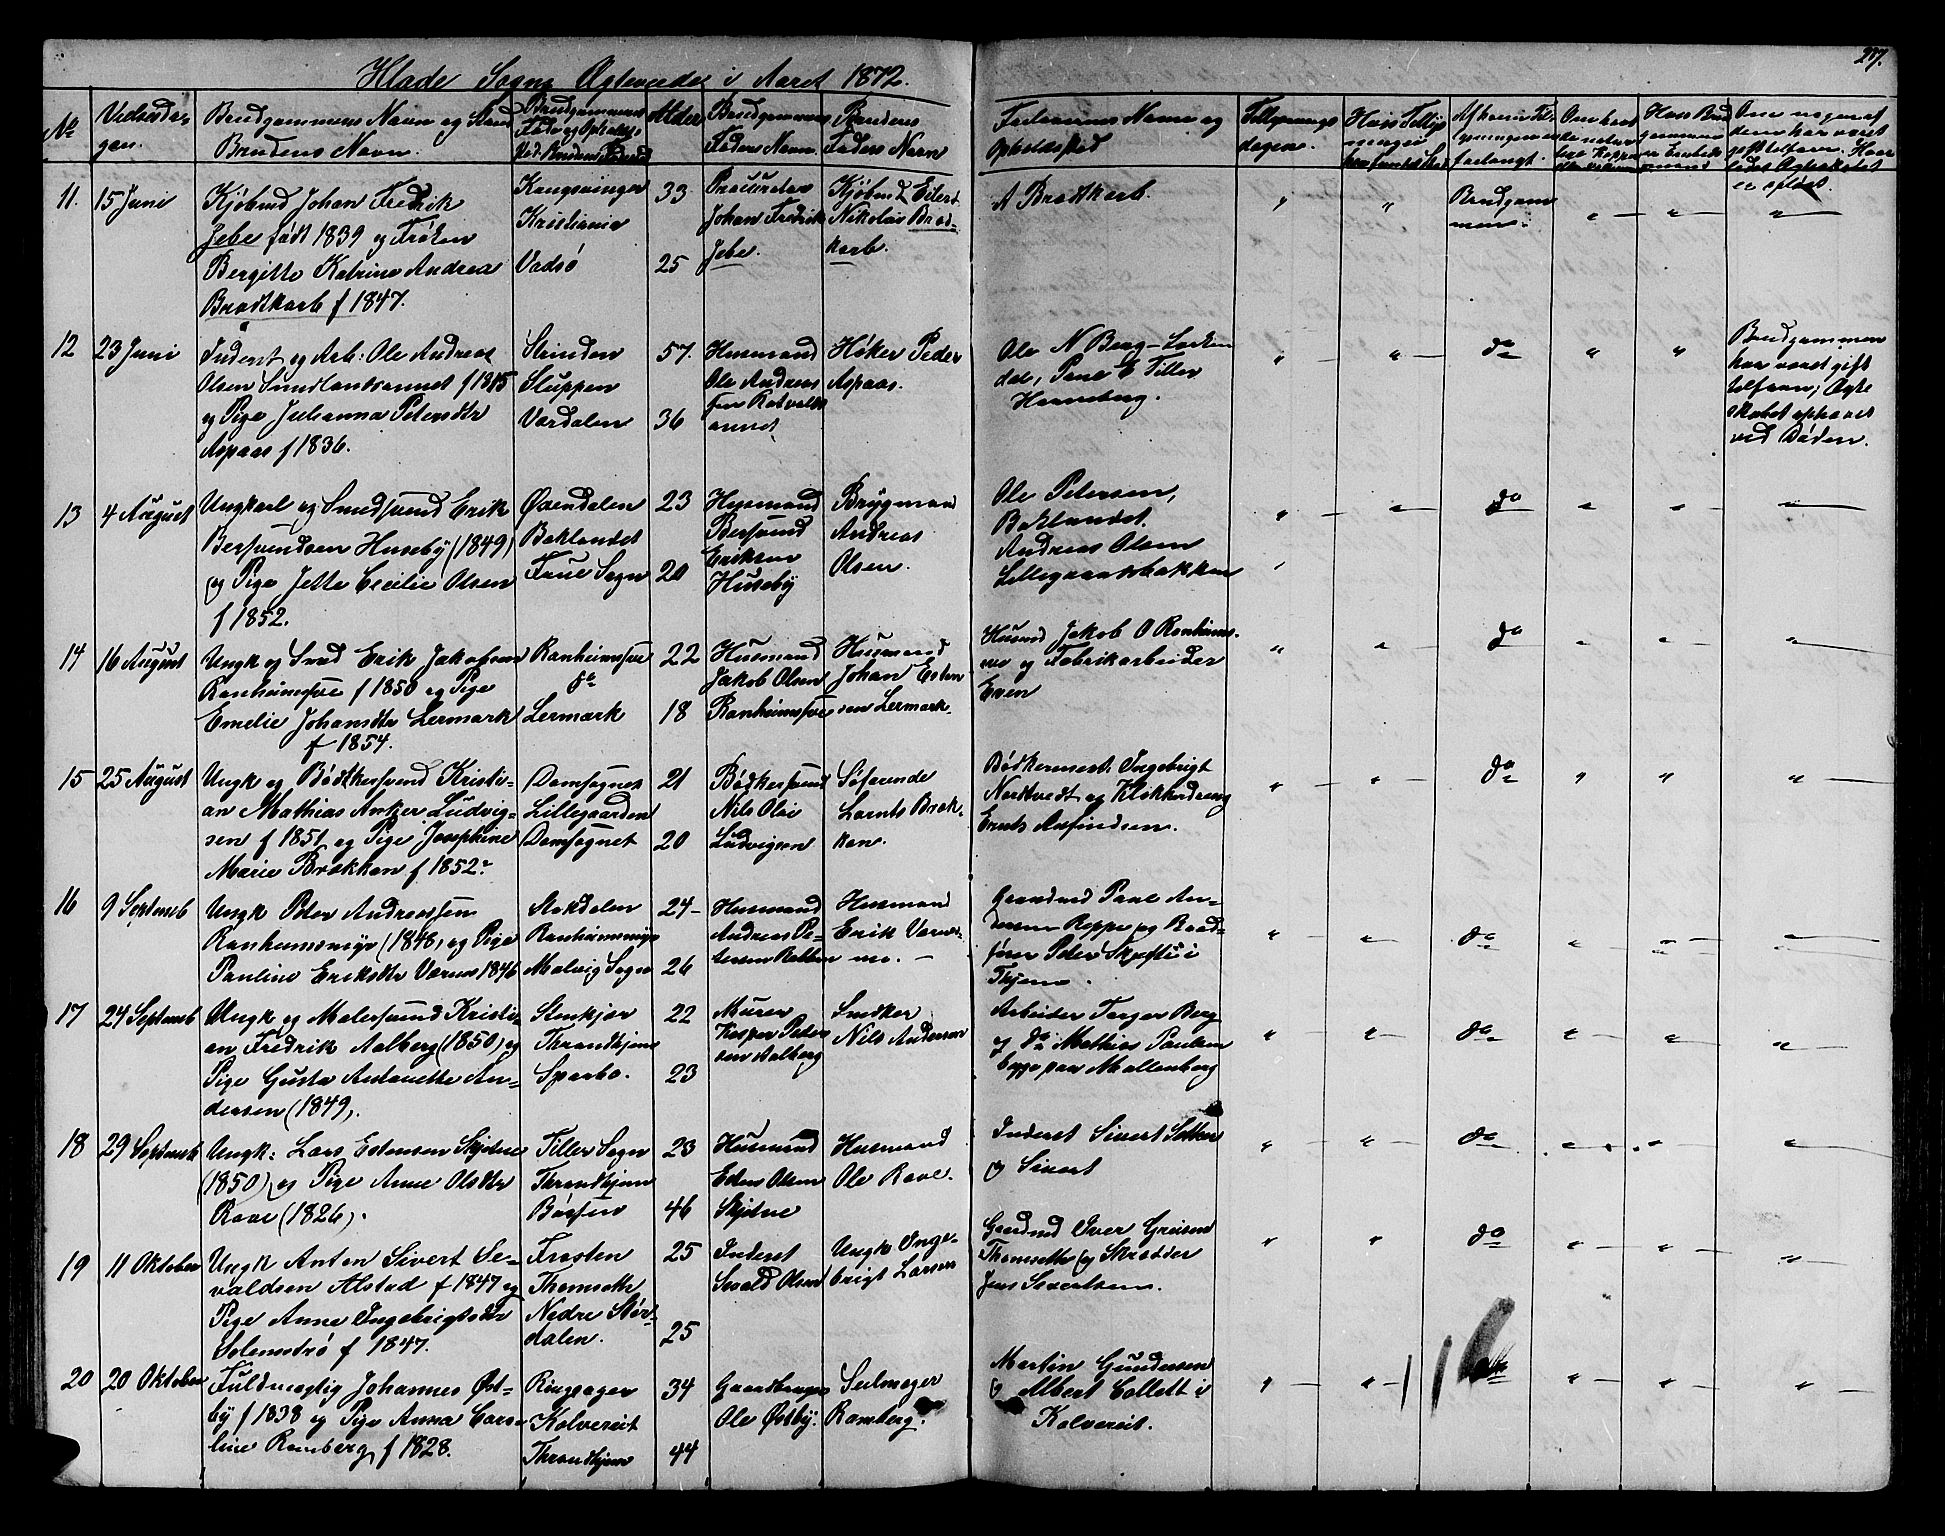 Hlade Sogns Ægteviede i Aaret 1872.
287.
No
Vielsesdagen.
Brudgommens Navn og Stand
Brudens Navn.
Alder
Brudgommens
Faders Navn
Brudens
Faders Navn
Forlovernes Navne og
Opholdssted
11. 15 Juni
Kjøbmd Johan Fredrik
Jebe født 1839 og Frøken
Bergitte Katrine Andrea
Brodtkorb f 1847.
Kongsvinger
Kristiania
Vadsø
33
25
Procurator
Johan Fredrik
Jebe.
Kjøbmd Eilert
Nikolai Brod-
korb.
A Brodtkorb.
Brudgom
men.
12 23 Juni
Inderst og Arb: Ole Andreas
Olsen Smidlandsaunet f 1815
og Pige Julianna Petersdtr
Aspaas f 1836.
Strinden
Sluppen
Værdalen
57.
36
Husmand
Ole Andreas
sen Rotvolds
aunet
Høker Peder
Aspaas.
Ole N Berg - Loeken
dal, Paul E Tiller
Hoeneberg.
do
Brudgommen
har været gift
tilforn; Ægte
skabet ophævet
ved Døden.
13 4 August
Ungkarl og Smedsvend Erik
Bersvendsen Huseby (1849)
og Pige Jette Cecilie Olsen
f 1852.
Øvendalen
Baklandet
Frue Sogn
23
20
Husmand
Bersvend
Eriksen
Huseby
Brygmand
Andreas
Olsen.
Ole Petersen,
Baklandet.
Andreas Olsen
Lillegaardsbakken
do
14 16 August
Ungk og Smd Erik Jakobsen
Ranheimsøe f 1850 og Pige
Emelie Johansdtr Lermark
f 1854.
Ranheimsøe
do
Lermark
22
18
Husmand
Jakob Olsen
Ranheimsøe
Husmand
Johan Esten
sen Lermark.
Husmd Jakob O Ranheims-
øe og Fabrikarbeider
Even
do
15 25 August
Ungk og Bødkersvend Kristi-
an Mathias Anker Ludvig-
sen f 1851 og Pige Josephine
Marie Brækkan f 1852.
Domsognet
Lillegaarden
Domsognet
21
20
Bødkersvend
Nils Olai
Ludvigsen
Søfarende
Lornts Bræk-
kan.
Bødkermest. Ingebrigt
Nordtvedt og Klokkerdreng
Ernts Arfindsen.
do
16 9 Septemb
Ungk Peter Andreassen
Ranheimsmyr (1848) og Pige
Pauline Eriksdtr Værnes 1846
Stokdalen
Ranheimsmyr
Malvig Sogn
24
26
Husmand
Andreas Pe-
tersen Rabben
Husmand
Erik Værnes-
me.
Gaardmd Paul An-
dersen Reppe og Baad-
fører Peter Skjefte i
Thjem.
do
17 24 Septemb
Ungk og Malersvend Kristi-
an Fredrik Aalberg (1850) og
Pige Gusta Antonette An-
dersen (1849).
Stenkjær
Throndhjem
Sparbo.
22
23
Murer
Kasper Peter
sen Aalberg
Snedker
Nils Andersen
Arbeider Torger Berg
og do Mathias Paulsen
begge paa Møllenberg
do
18 29 Septemb
Ungk: Lars Estensen Skjetne
(1850) og Pige Anne Olsdtr
Raae (1826).
Tiller Sogn
Throndhjem
Børsen
23
46
Husmand
Esten Olsen
Skjetne
Husmand
Ole Raae.
Inderst Sivert Sæther
og Sivert
do
19 11 Oktober
Ungk Anton Sivert Se-
valdsen Alstad f 1847 og
Pige Anne Ingebrigtsdtr
Solemstrø f 1847.
Frosten
Thomseth
Nedre Stør-
dalen.
25
25
Inderst
Sevald Olsen
Ungk Inge-
brigt Larsen
Gaardmd Iver Greisen
Thomseth og Skrædder
Jens Sivertsen.
do
20 20 Oktober
Fuldmægtig Johannes Øst-
by f 1838 og Pige Anna Caro-
line Ramberg f 1828.
Ringsager
Kolvereit
Throndhjem
34
44
Gaardbruger
Ole Østby.
Seilmager
Ramberg.
Martin Gundersen
og Albert Collett i
Kolvereit.